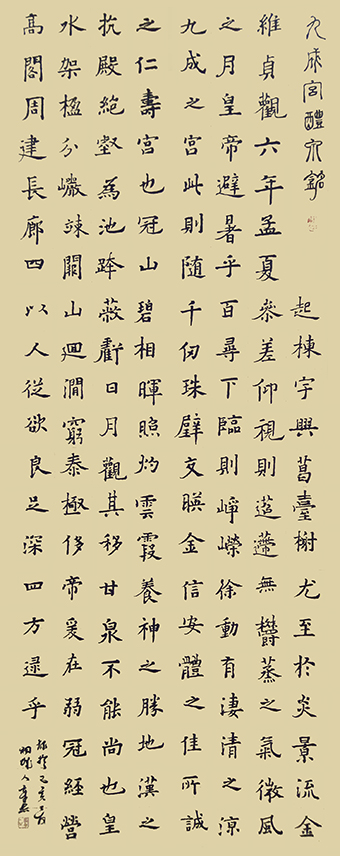 九成宮醴泉銘
維貞觀六年孟夏
之月皇帝避暑乎
九成之宮此則随
之仁壽宮也冠山
抗殿絕壑為池跨
水架楹分巖竦闕
高閣周建長廊四
起棟宇興葛臺榭
叅差仰視則迢遰
百尋下臨則崢嶸
千仞珠璧交暎金
碧相暉照灼雲霞
蔽虧日月觀其移
山迴澗窮泰極侈
以人從欲良足深
尤至於炎景流金
無欝蒸之氣微風
徐動有淒清之涼
信安體之佳所誠
養神之勝地漢之
甘泉不能尚也皇
帝爰在弱冠經營
四方逮乎